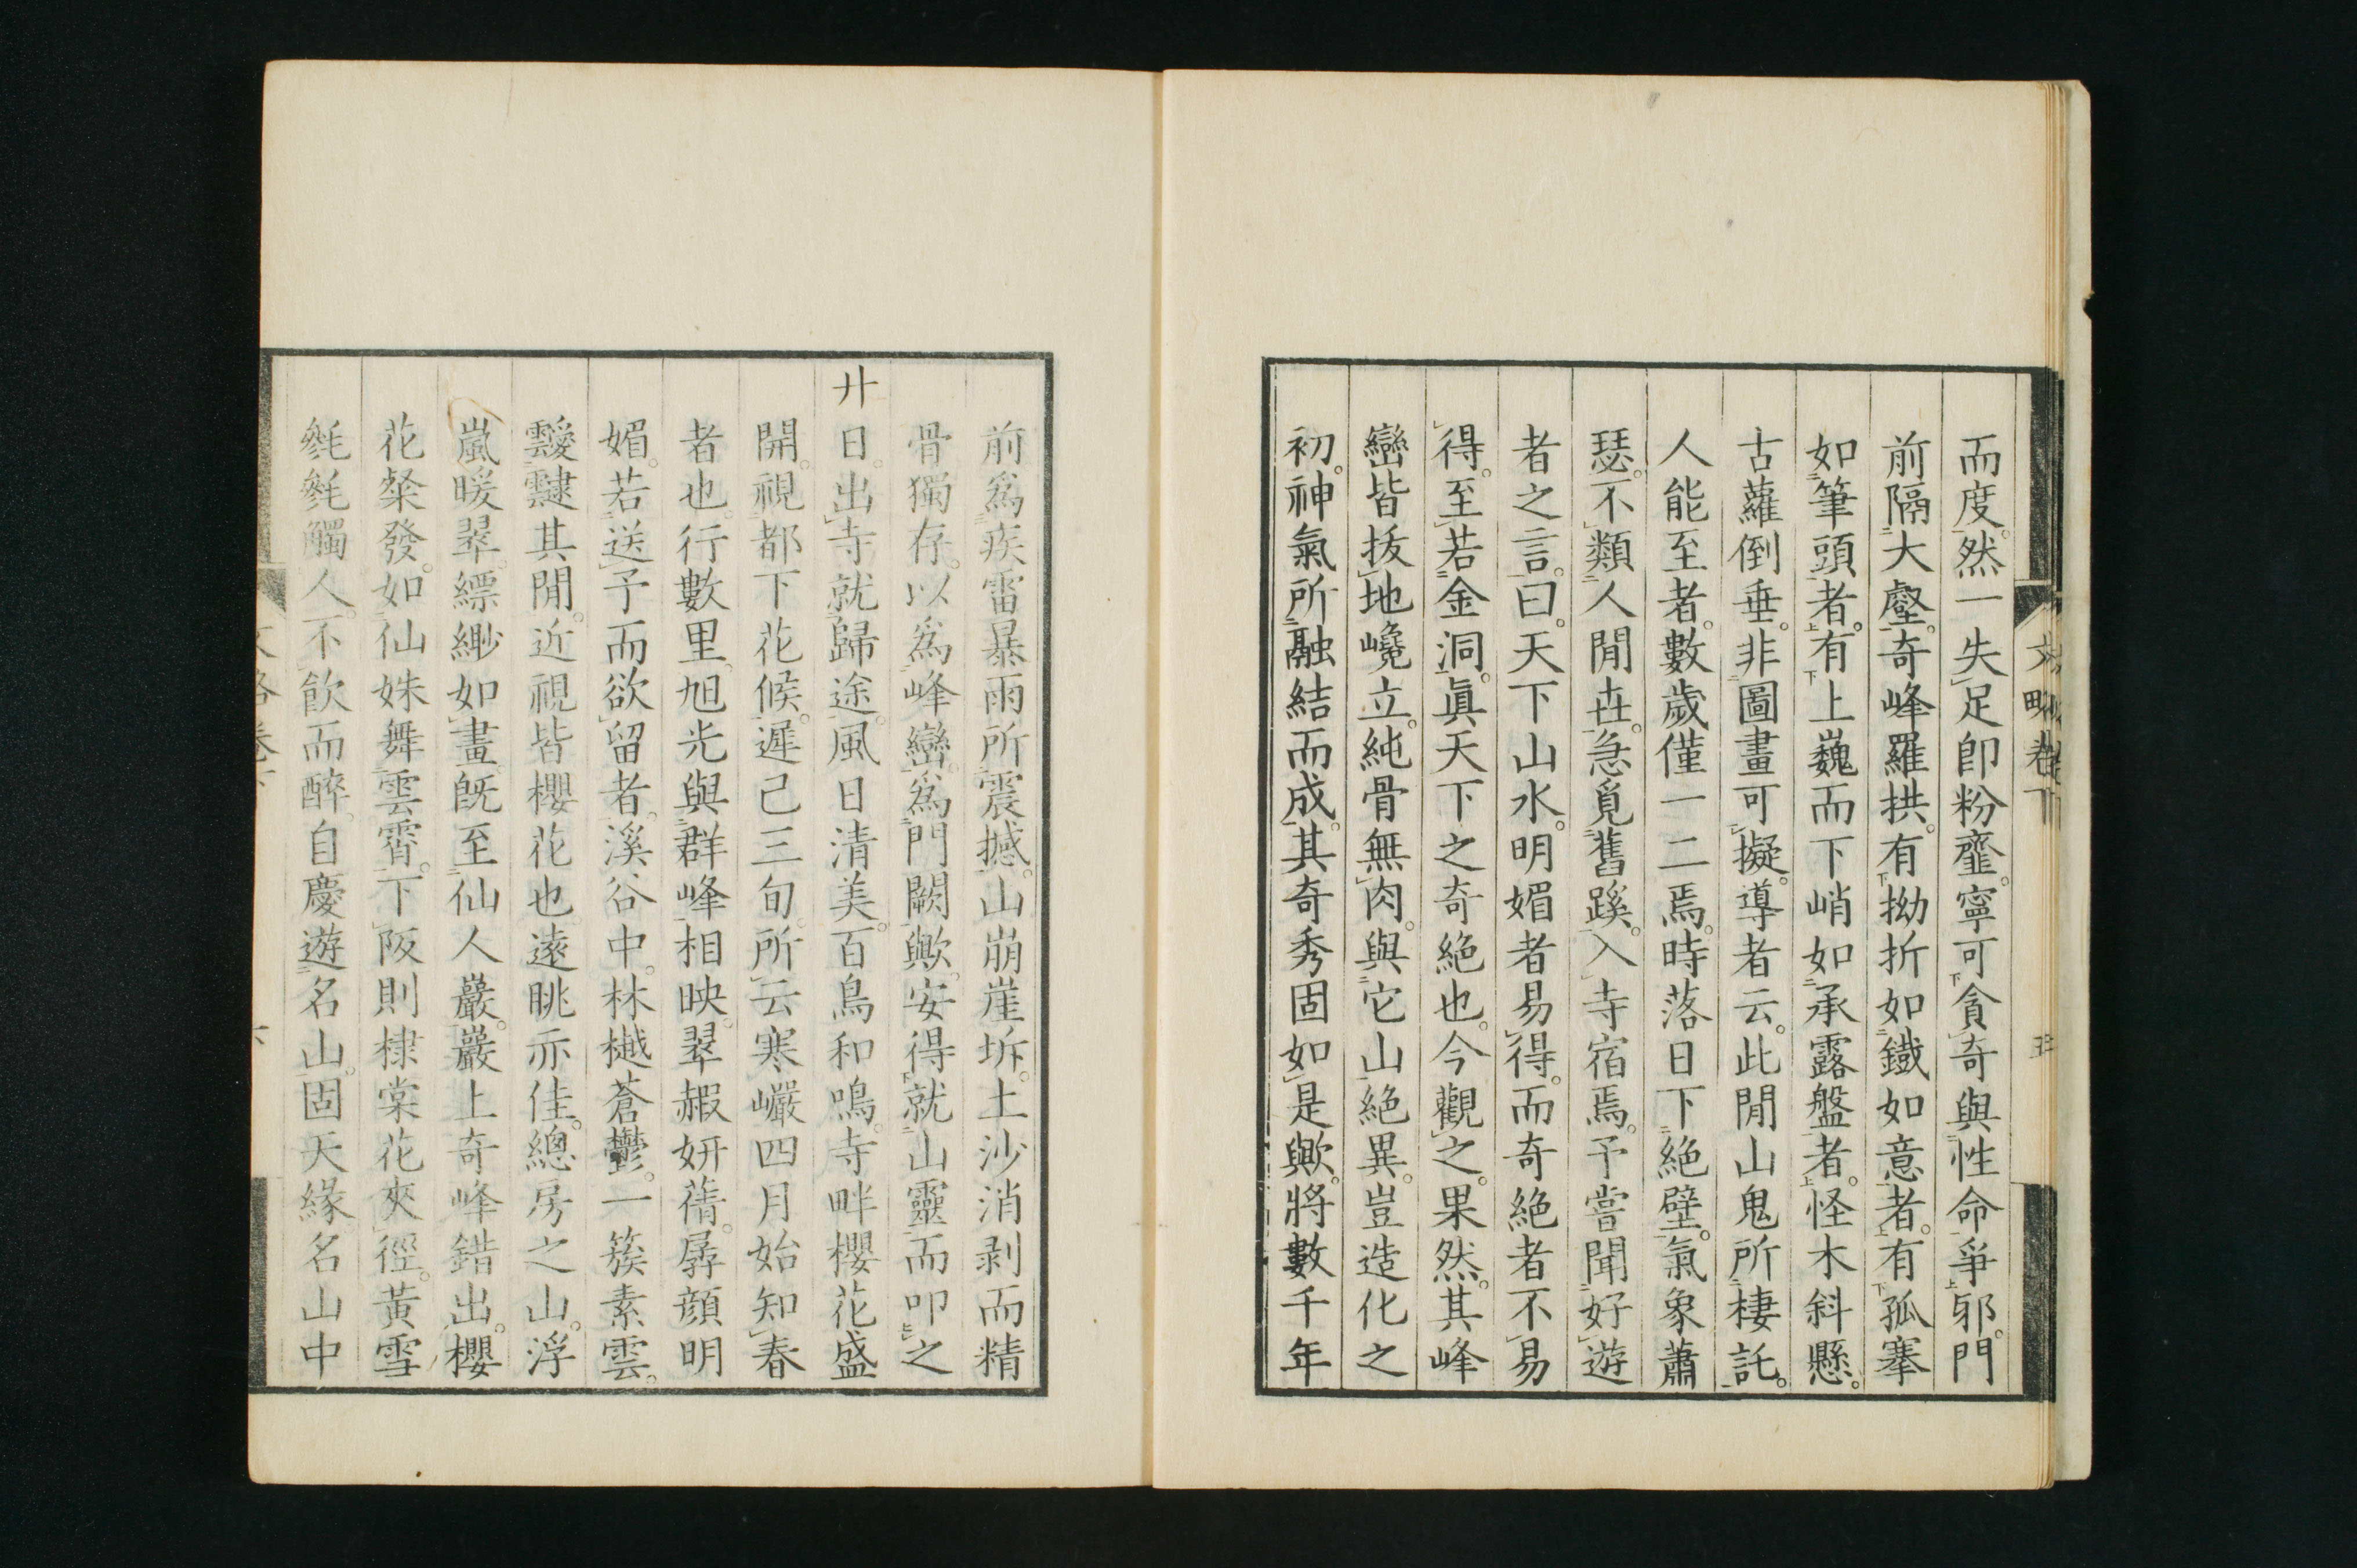 而度。然一失足卽粉韲。寧可貪奇與性命爭邪。門
前隔大壑。奇峰羅拱。有拗折如鐵如意者。有孤搴
如筆頭者。有上巍而下峭如承露盤者。怪木斜懸。
古蘿倒垂。非圖畫可擬。導者云。此閒山鬼所棲託。
人能至者。數歲僅一二焉。時落日下絕壁。氣象蕭
瑟。不類人閒世。急覓舊蹊。入寺宿焉。予嘗聞好遊
者之言。曰。天下山水。明媚者易得。而奇絕者不易
得。至若金洞。眞天下之奇絕也。今觀之。果然。其峰
巒皆拔地巉立。純骨無肉。與它山絕異。豈造化之
初。神氣所融結而成。其奇秀固如是歟。將數千年
文略卷下
五
前爲疾雷暴雨所震撼。山崩崖坼。土沙消剥而精
骨獨存。以爲峰巒。爲門闕歟。安得就山靈而叩之
廾日。出寺就歸途。風日清美。百鳥和鳴。寺畔櫻花盛
開。視都下花候。遲已三旬。所云寒巖四月始知春
者也。行數里。旭光與群峰相映。翠赧妍蒨。孱顏明
媚。若送予而欲留者。溪谷中。林樾蒼鬱。一簇素雲。
靉靆其閒。近視皆櫻花也。遠眺亦佳。總房之山。浮
嵐暖翠。縹緲如畫。旣至仙人巖。巖上奇峰錯出。櫻
花粲發。如仙姝舞雲霄。下阪則棣棠花夾徑。黃雪
毿毿觸人。不飮而醉。自慶遊名山。固天緣。名山中
六